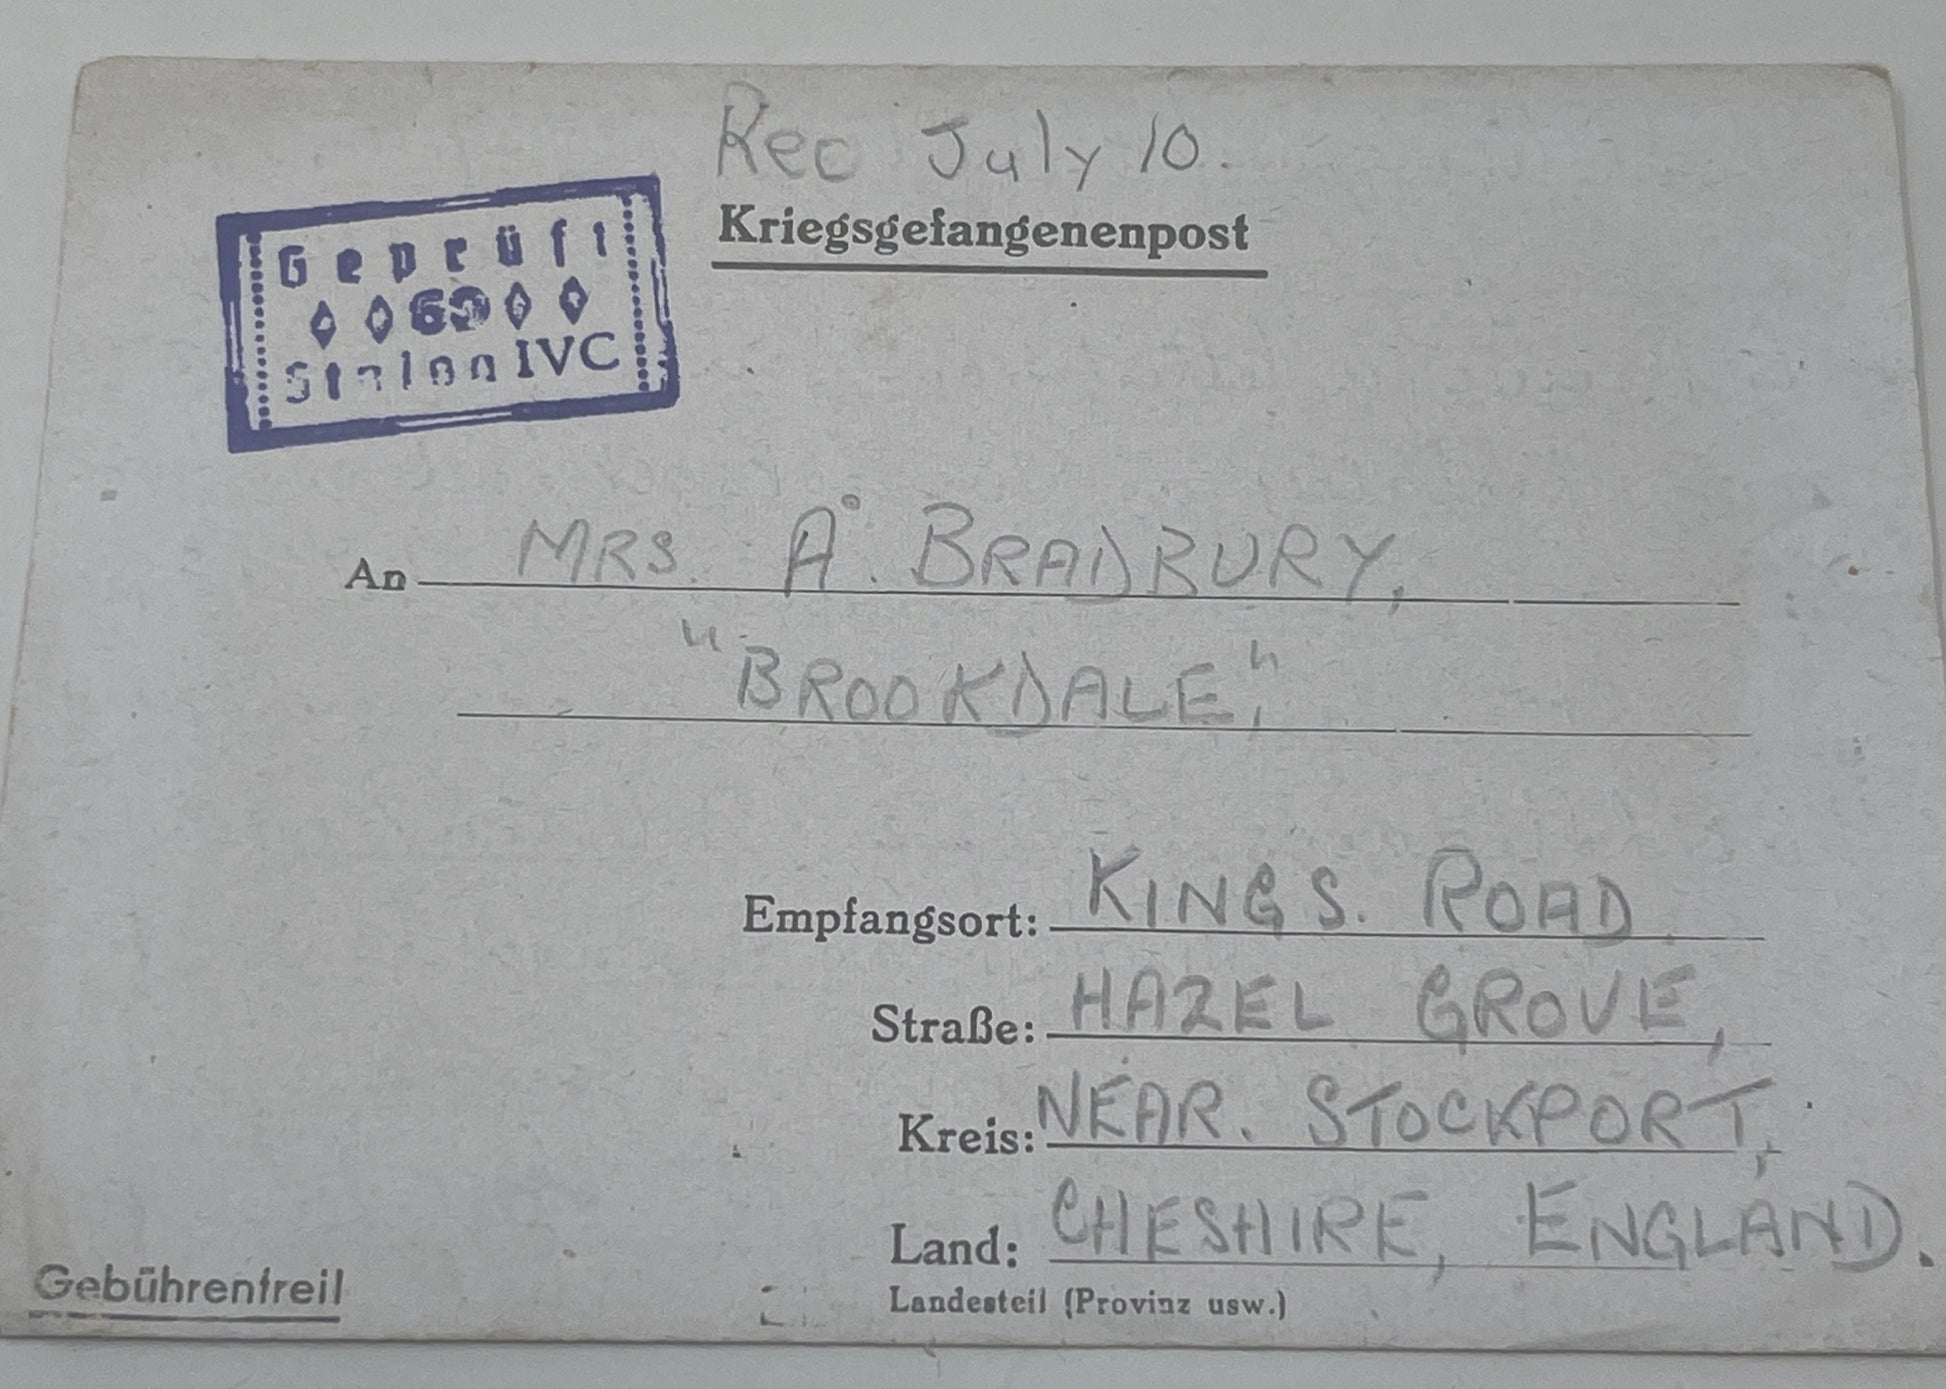 Rec July 10.
Kriegsgefangenenpost
Geprüft
69
Stalag IVC
An MRS. A. BRADBURY,
"BROOKDALE,"
Empfangsort: KINGS. ROAD
Straße: HAZEL GROVE,
Kreis: NEAR. STOCKPORT,
Land: CHESHIRE, ENGLAND.
Landesteil (Provinz usw.)
Gebührenfrei!